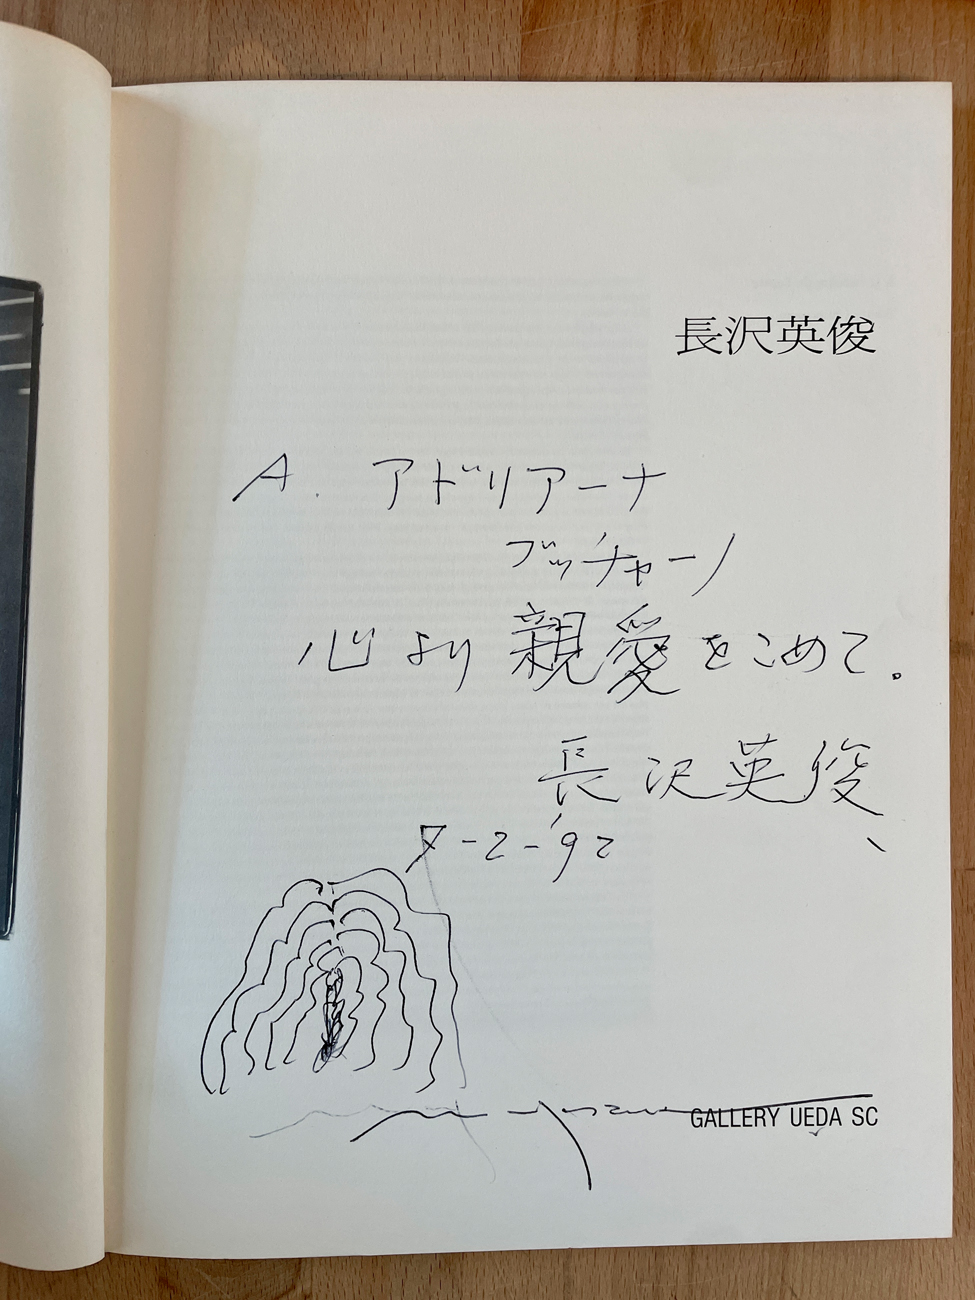 長沢英俊
A. アドリアーナ
ブッチャーノ
心より親愛をこめて。
長沢英俊、
8-2-'92
GALLERY UEDA SC